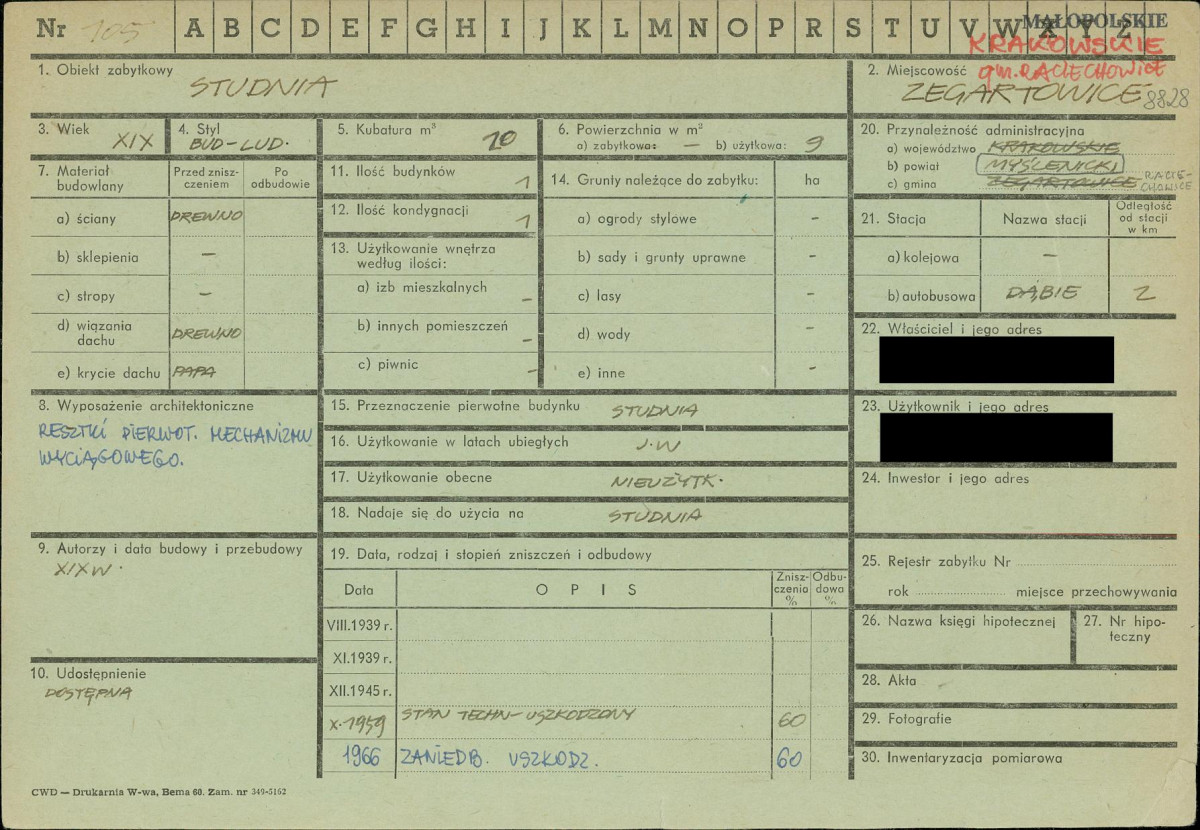 Nr 105 A B C D E F G H I J K L M N O P R S T U V W X Y Z
MAŁOPOLSKIE
KRAKOWSKIE
gm. RACIECHOWICE
1. Obiekt zabytkowy
STUDNIA
2. Miejscowość
ZEGARTOWICE 8828
3. Wiek
XIX
4. Styl
BUD-LUD.
5. Kubatura m³
10
6. Powierzchnia w m²
a) zabytkowa: — b) użytkowa: 9
7. Materiał budowlany
Przed znisz-
czeniem
Po
odbudowie
a) ściany DREWNO
b) sklepienia —
c) stropy —
d) wiązania
dachu DREWNO
e) krycie dachu PAPA
8. Wyposażenie architektoniczne
RESZTKI PIERWOT. MECHANIZMU
WYCIĄGOWEGO.
9. Autorzy i data budowy i przebudowy
XIX W.
10. Udostępnienie
DOSTĘPNA
11. Ilość budynków
1
12. Ilość kondygnacji
1
13. Użytkowanie wnętrza
według ilości:
a) izb mieszkalnych –
b) innych pomieszczeń –
c) piwnic –
14. Grunty należące do zabytku: ha
a) ogrody stylowe –
b) sady i grunty uprawne –
c) lasy –
d) wody –
e) inne –
15. Przeznaczenie pierwotne budynku STUDNIA
16. Użytkowanie w latach ubiegłych J.W
17. Użytkowanie obecne NIEUŻYTK.
18. Nadaje się do użycia na STUDNIA
19. Data, rodzaj i stopień zniszczeń i odbudowy
Data
O P I S
Znisz-
czenia
%
Odbu-
dowa
%
VIII.1939 r.
XI.1939 r.
XII.1945 r.
X.1959 STAN TECHN-USZKODZONY 60
1966 ZANIEDB. USZKODZ. 60
20. Przynależność administracyjna
a) województwo KRAKOWSKIE
b) powiat MYŚLENICKI
c) gmina ZEGARTOWICE RACIE-
CHOWICE
21. Stacja
Nazwa stacji
Odległość
od stacji
w km
a) kolejowa —
b) autobusowa DĄBIE 2
22. Właściciel i jego adres
23. Użytkownik i jego adres
24. Inwestor i jego adres
25. Rejestr zabytku Nr
rok miejsce przechowywania
26. Nazwa księgi hipotecznej
27. Nr hipo-
teczny
28. Akta
29. Fotografie
30. Inwentaryzacja pomiarowa
CWD — Drukarnia W-wa, Bema 60. Zam. nr 349-5162